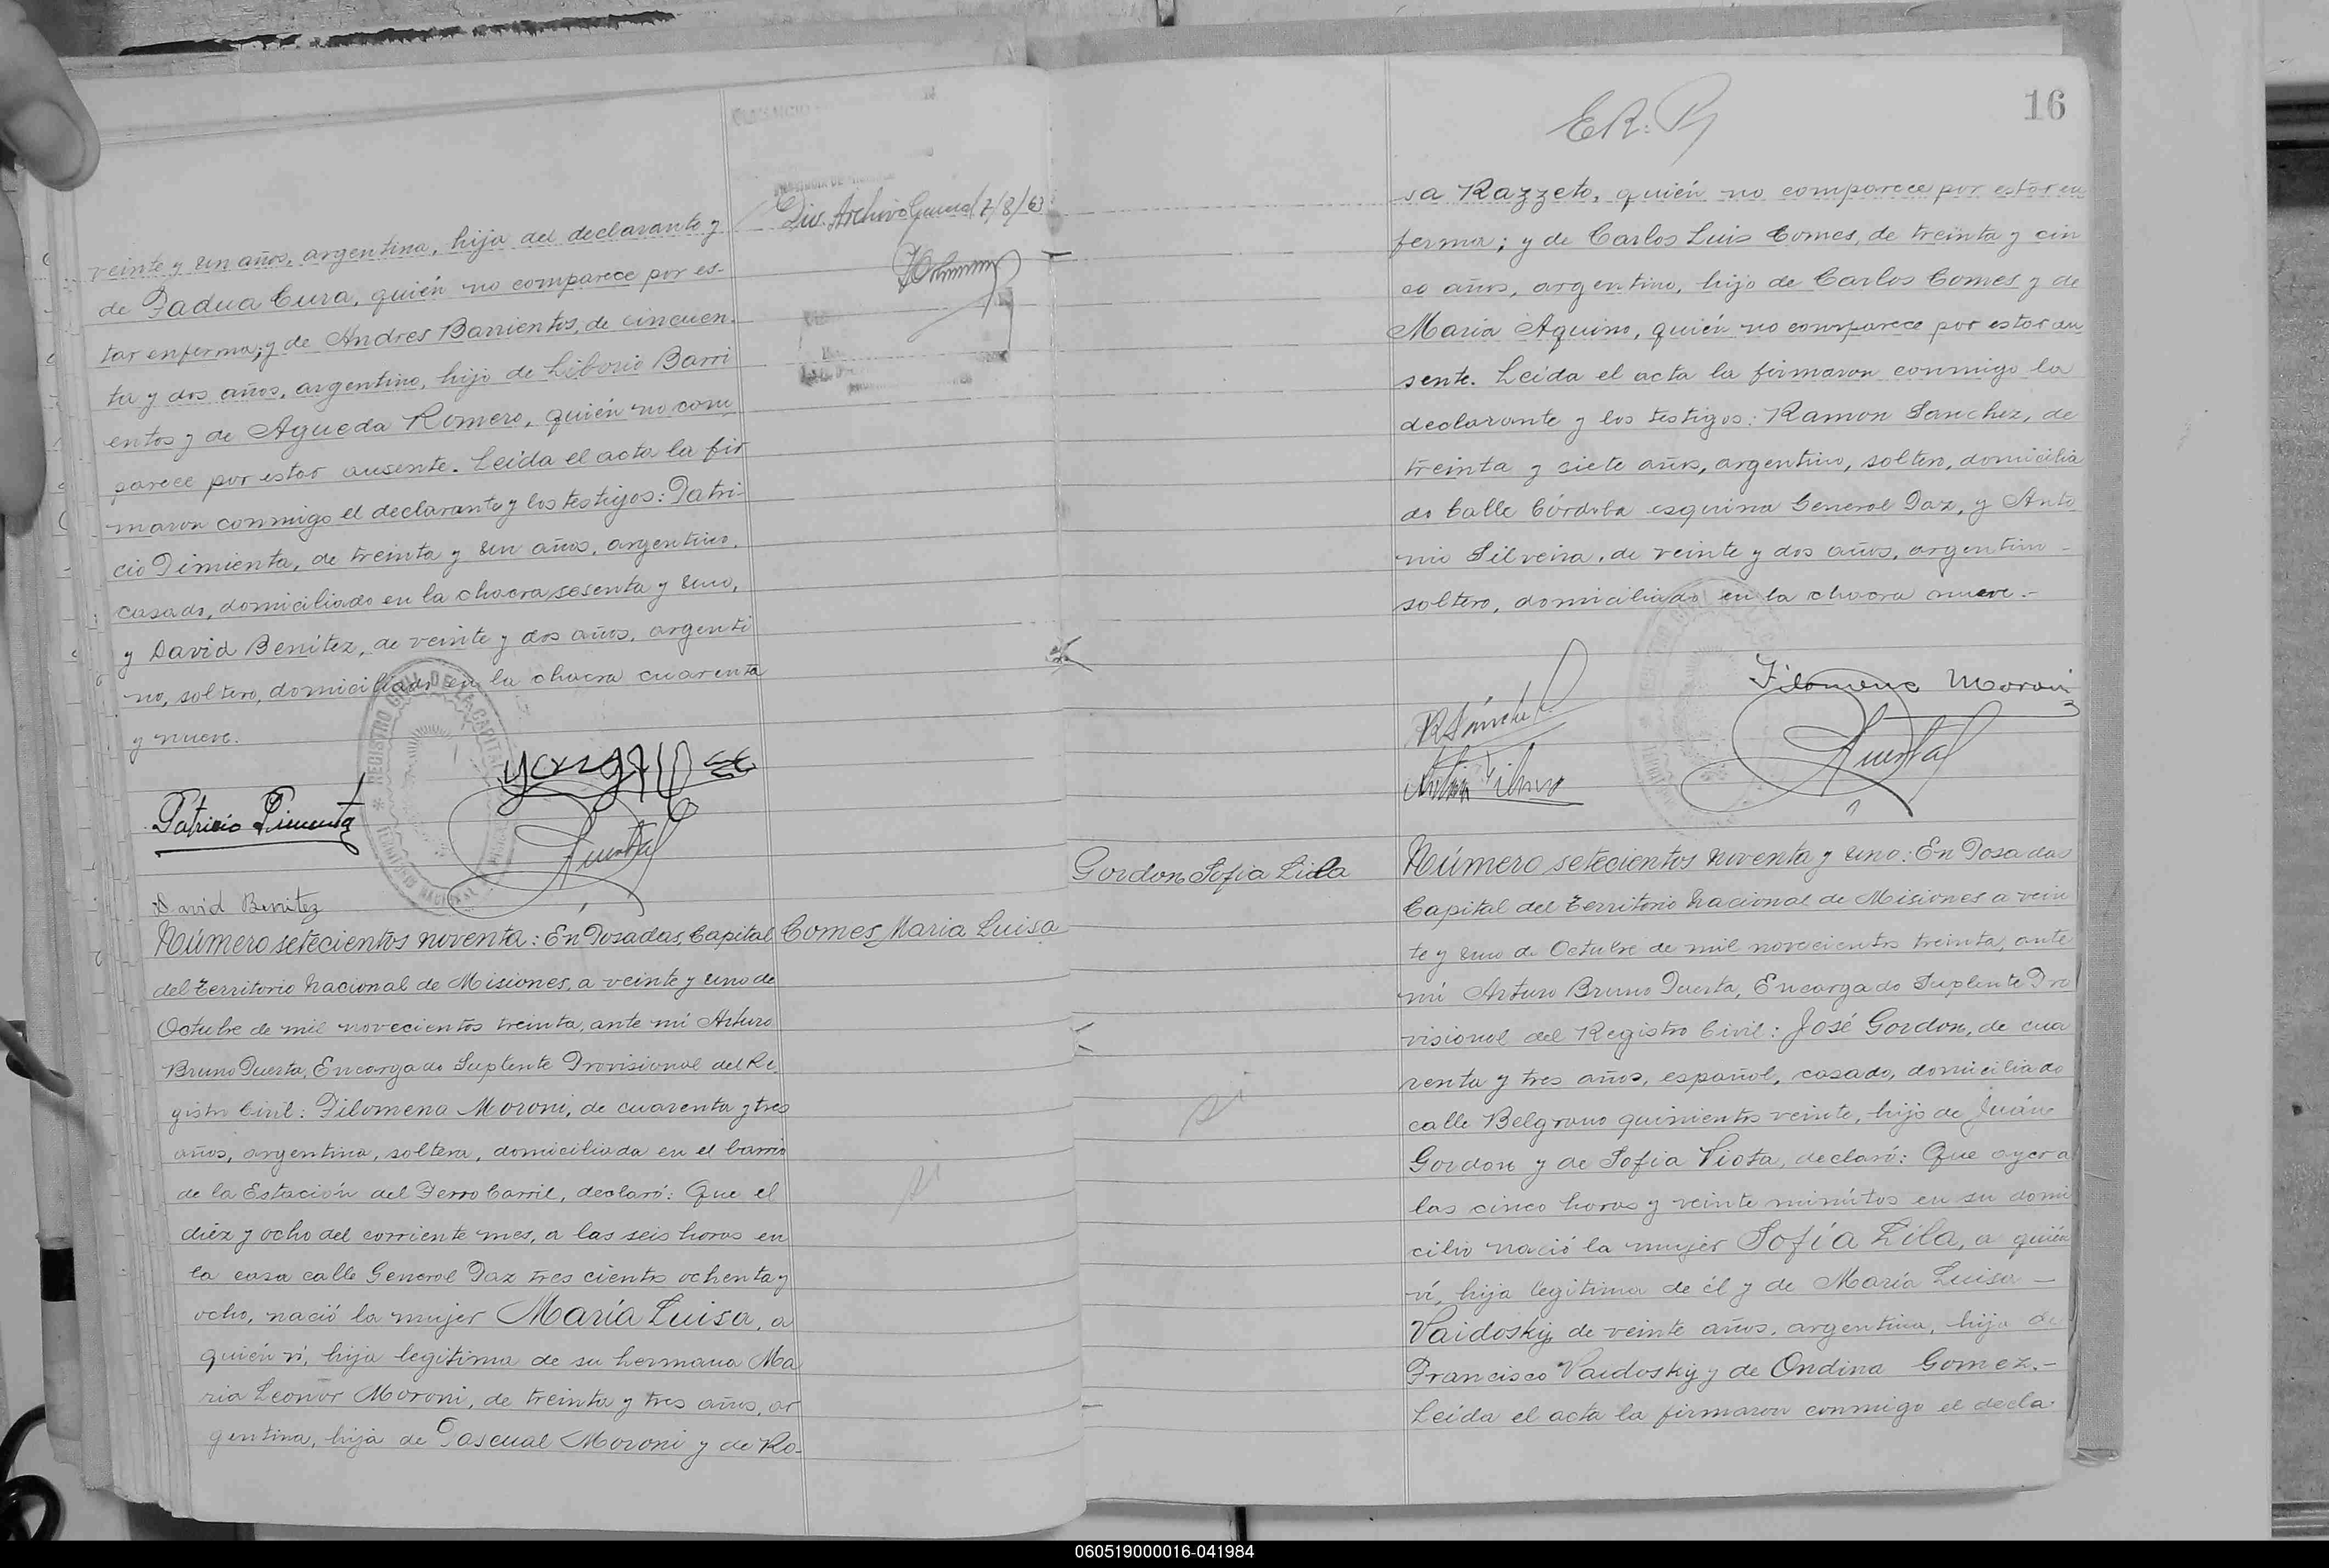 Div. Archivo General 7/8/63
veinte y un años, argentina, hija del declarante y
de Padua Cura, quién no comparece por es-
tar enferma; y de Andres Barrientos, de cincuen-
ta y dos años, argentino, hijo de Liborio Barri
entos y de Agueda Romero, quién no com
parece por estar ausente. Leida el acta la fir
maron conmigo el declarante y los testigos: Patri-
cio Pimienta, de treinta y un años, argentino,
casado, domiciliado en la chacra sesenta y uno,
y David Benítez, de veinte y dos años, argenti
no, soltero, domiciliado en la chacra cuarenta
y nueve.
REGISTRO CIVIL DE LA CAPITAL
Patricio Pimienta
David Benitez
Gomes Maria Luisa
Número setecientos noventa: En Posadas, Capital
del Territorio Nacional de Misiones, a veinte y uno de
Octubre de mil novecientos treinta, ante mí Arturo
Bruno Puerta, Encargado Suplente Provisional del Re-
gistro Civil: Filomena Moroni, de cuarenta y tres
años, argentina, soltera, domiciliada en el barrio
de la Estación del Ferro Carril, declaró: Que el
diéz y ocho del corriente mes, a las seis horas en
la casa calle General Paz trescientos ochenta y
ocho, nació la mujer María Luisa, a
quién ví, hija legitima de su hermana Ma
ria Leonor Moroni, de treinta y tres años, ar
gentina, hija de Pascual Moroni y de Ro-
si
16
E.R.
sa Razzeto, quién no comparece por estar en
ferma; y de Carlos Luis Gomes, de treinta y cin
co años, argentino, hijo de Carlos Gomes y de
Maria Aquino, quién no comparece por estar au
sente. Leida el acta la firmaron conmigo la
declarante y los testigos: Ramon Sanchez, de
treinta y siete años, argentino, soltero, domicilia
do Calle Córdoba esquina General Paz, y Anto
nio Silveira, de veinte y dos años, argentino -
soltero, domiciliado en la chacra nueve.-
Filomena Moroni
R Sánchez
Puerta
Gordon Sofia Lila
Número setecientos noventa y uno: En Posadas
Capital del Territorio Nacional de Misiones a vein
te y uno de Octubre de mil novecientos treinta, ante
mí Arturo Bruno Puerta, Encargado Suplente Pro
visional del Registro Civil: José Gordon, de cua
renta y tres años, español, casado, domiciliado
calle Belgrano quinientos veinte, hijo de Juán
Gordon y de Sofia Viota, declaró: Que ayer a
las cinco horas y veinte minútos en su domi
cilio nació la mujer Sofía Lila, a quién
ví, hija legitima de él y de María Luisa -
Vaidosky, de veinte años, argentina, hija de
Francisco Vaidosky y de Ondina Gomez.-
Leida el acta la firmaron conmigo el decla-
si
060519000016-041984